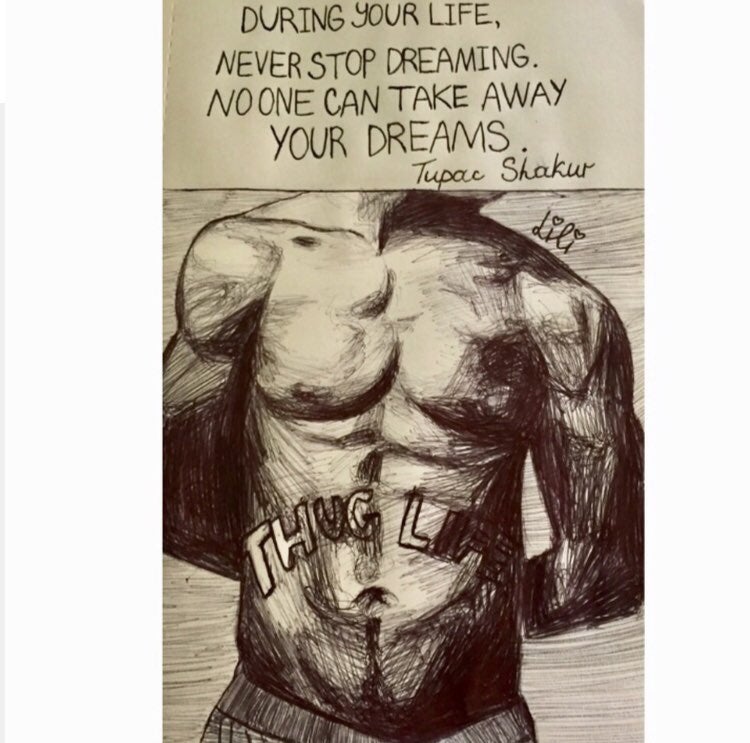 DURING YOUR LIFE,
NEVER STOP DREAMING.
NO ONE CAN TAKE AWAY
YOUR DREAMS.
Tupac Shakur
Lili
THUG LIFE